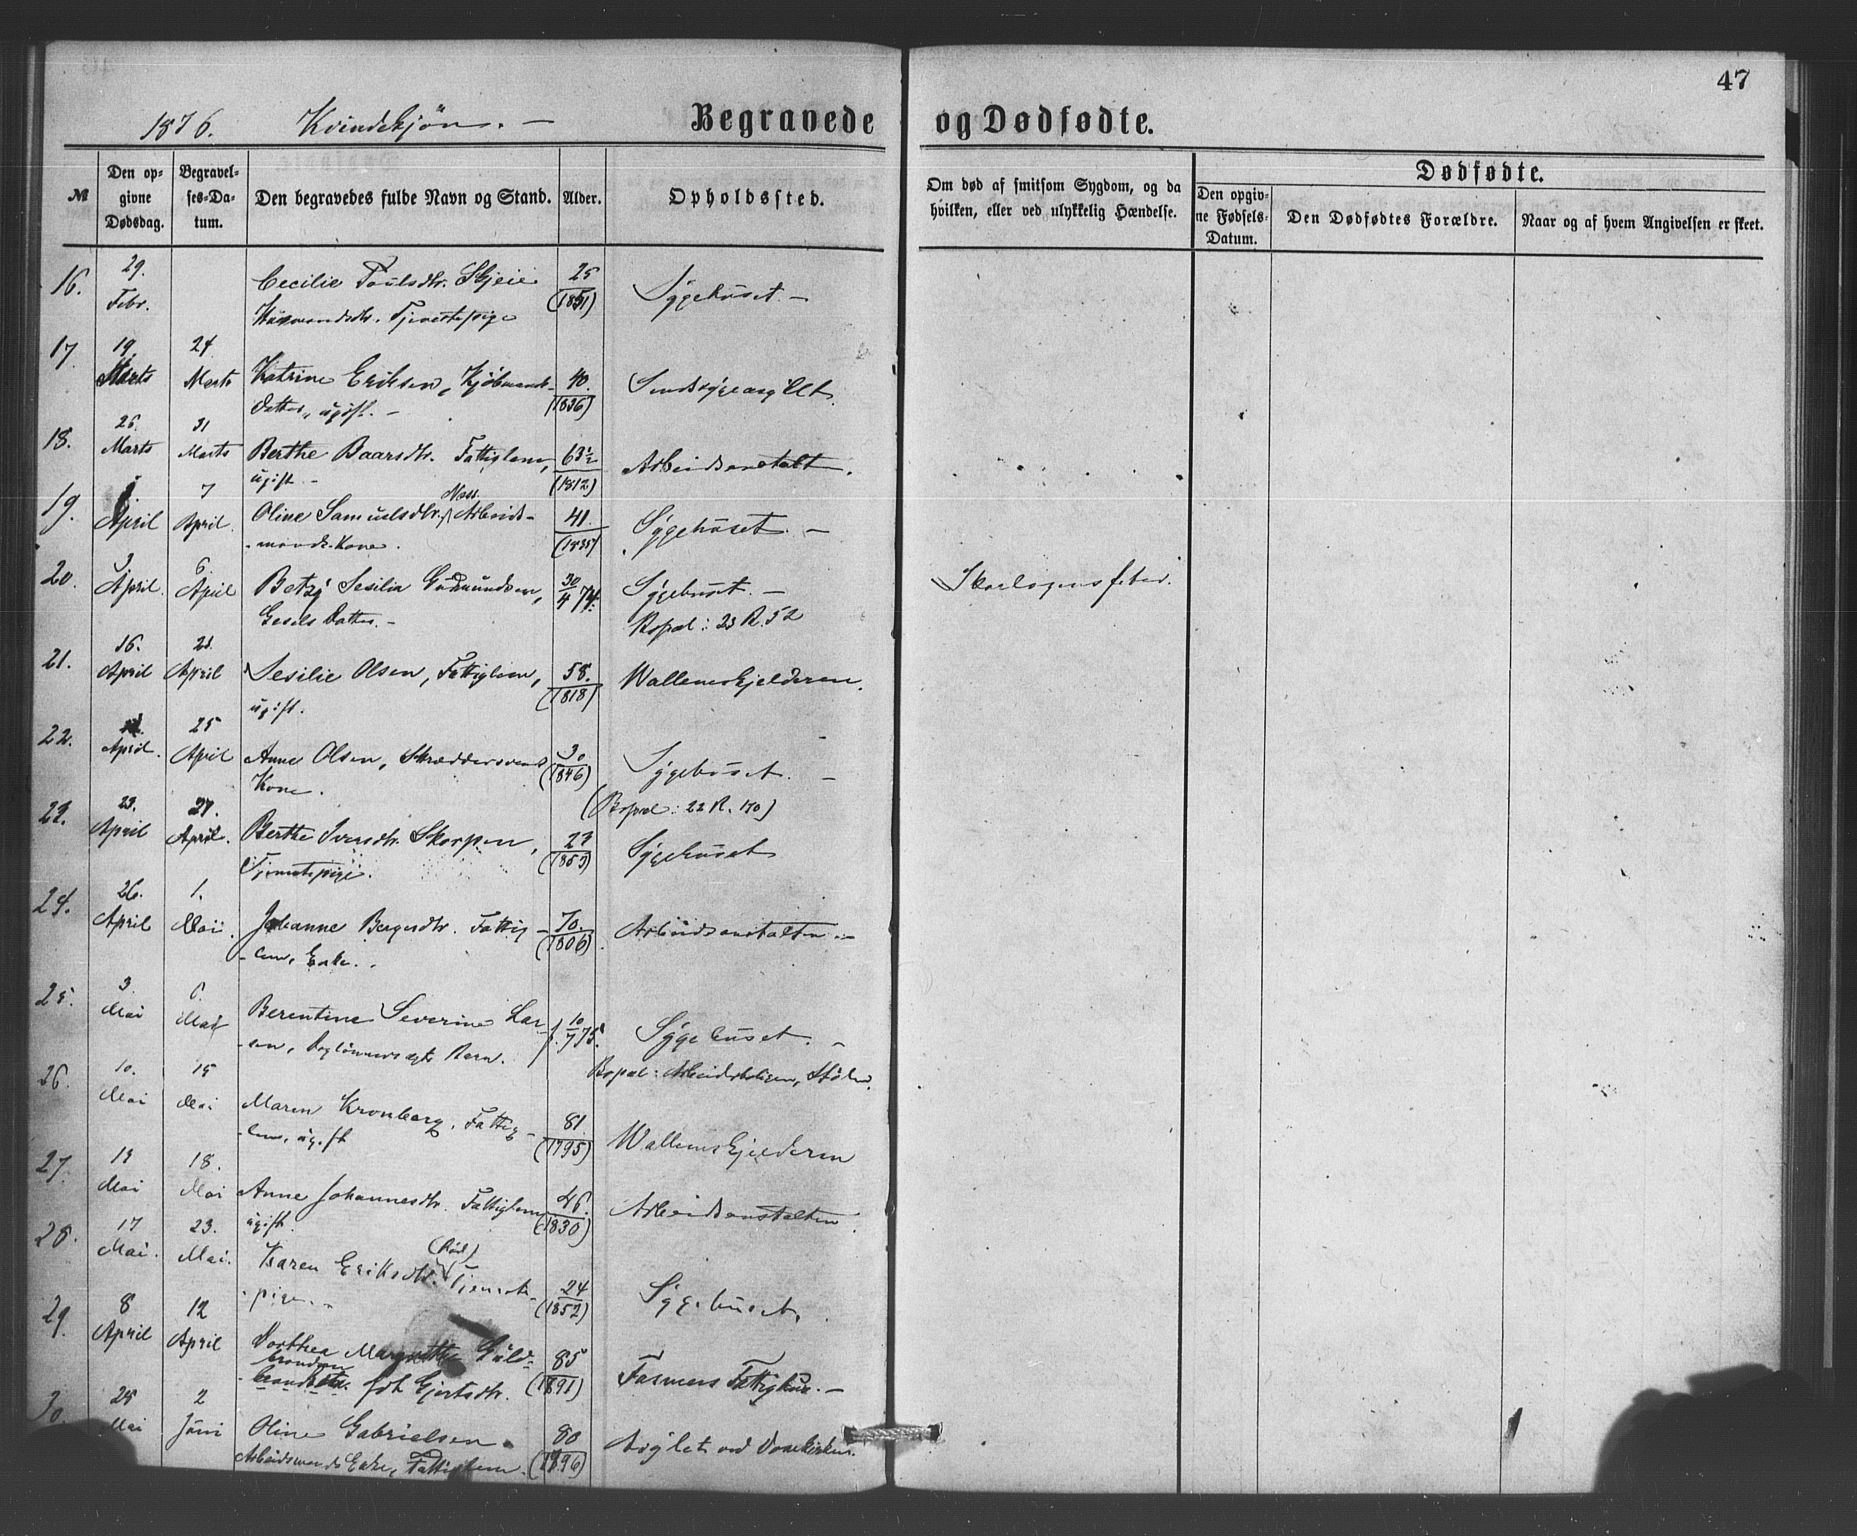 47
1876. Kvindekjøn. —
Begravede og Dødfødte.
№
Den op-
givne
Dødsdag.
Begravel-
ses-Da-
tum.
Den begravedes fulde Navn og Stand.
Alder.
Opholdssted.
Om død af smitsom Sygdom, og da
hvilken, eller ved ulykkelig Hændelse.
Dødfødte.
Den opgiv-
ne Fødsels-
Datum.
Den Dødfødtes Forældre.
Naar og af hvem Angivelsen er skeet.
16. 29. Febr. Cecilie Poulsdtr. Skjeie 25 (1851) Sygehuset —
Husmandsdtr. Tjenestepige
17 19. Marts 24 Marts Katrine Eriksen, Kjøbmands- 40. (1836) Sindssygeasylet
Datter, ugift. —
18. 26. Marts 31 Marts Berthe Baarsdtr. Fattiglem, 63½ (1812) Arbeidsanstalt.
ugift. —
19. 1. April 7 April. Oline Samuelsdtr. Arbeids- 41. (1835) Sygehuset. —
mands Kone.
20. 3 April. 6. April Betzy Sesilia Gudmundsen, 30/4 74. Sygehuset. — Skarlagensfeber.
Gesels Datter. — Bopæl: 23 R. 52
21. 16. April 21. April Sesilie Olsen, Fattiglem, 58. (1818) Wallemskjelderen.
ugift.
22. April. 25 April Anne Olsen, Skræddersvends 30 (1846) Sygehuset. —
Kone. (Bopæl: 22 R. 170)
23. 23. April 27. April. Berthe Iversdtr. Skorpen, 23 (1853) Sygehuset
Tjenestepige.
24. 26. April 1. Mai. Johanne Bergesdtr. Fattig- 70. (1806) Arbeidsanstalten —
-lem, Enke.
25. 3. Mai 6. Mai Berentine Severine Lar- f. 10/7 75. Sygehuset. —
sen, Dagløнners ægte Barn. Bopæl: Arbeidsboligen, Stølen.
26. 10. Mai 15 Mai Maren Kronberg, Fattig- 81. (1795) Wallemskjelderen
-lem, ugift
27. 13 Mai 18. Mai Anne Johannesdtr. Fattiglem 46. (1830) Arbeidsanstalten.
ugift.
28. 17 Mai. 23. Mai. Karen Eriksdtr. Tjeneste- 24 (1852) Sygehuset.
pige. —
29. 8 April 12 April Dorthea Margrethe Guld- 85 (1891) Fasmers Fattighus. —
brandsen
fdt. Gjertsdtr.
30. 25 Mai 2 Juni Oline Gabrielsen. 80 (1896) Asylet ved Domkirken.
Arbeidsmands Enke, Fattiglem.